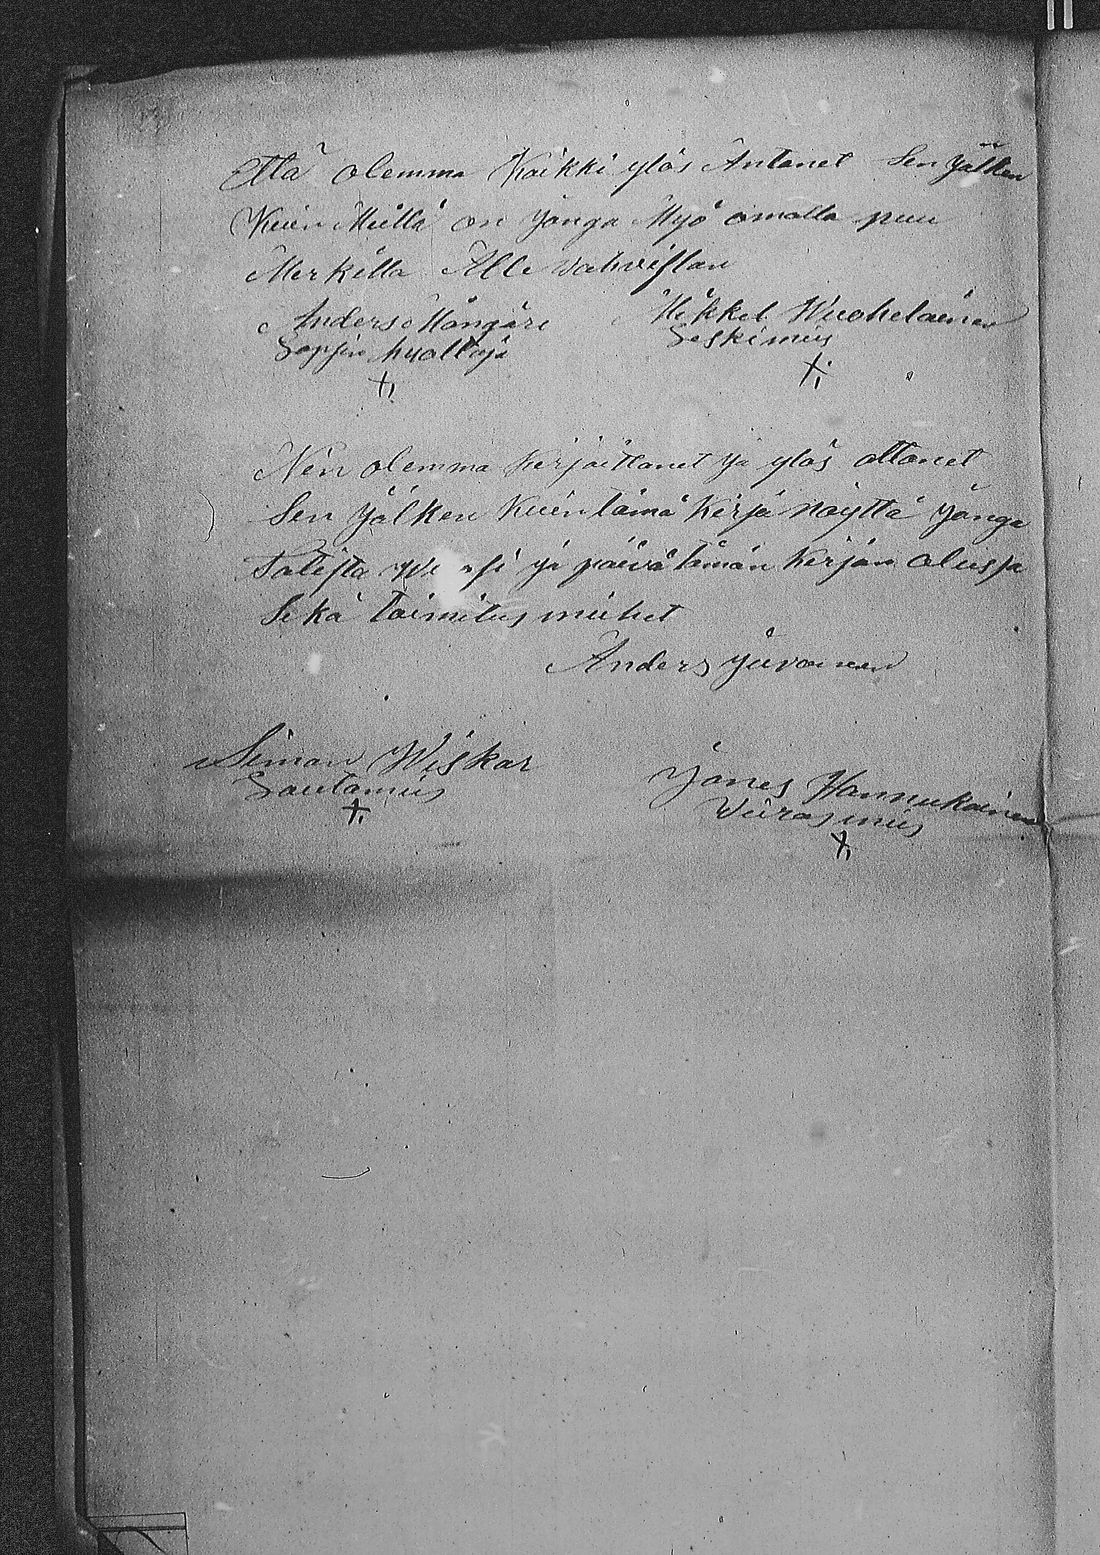 Että olemma Kaikki ylös Antanet Sen jälken
Kuin Meillä on jonga Myö omalla puu
Merkillä Alle vahvistan
Anders Hängäri Mikkel Wuohelainen
Lapsin hualtija Leskimies
+, +,
Nin olemma Kirjoittanet ja ylös ottanet
Sen jälken Kuin tämä Kirja näyttä jonga
Talista ja päivä tämän Kirjan alussa
Sekä toimitus miehet
Anders Juvonen
Simon Wiskar Jonas Hannukainen
Lautamies Vieras mies
+, +,